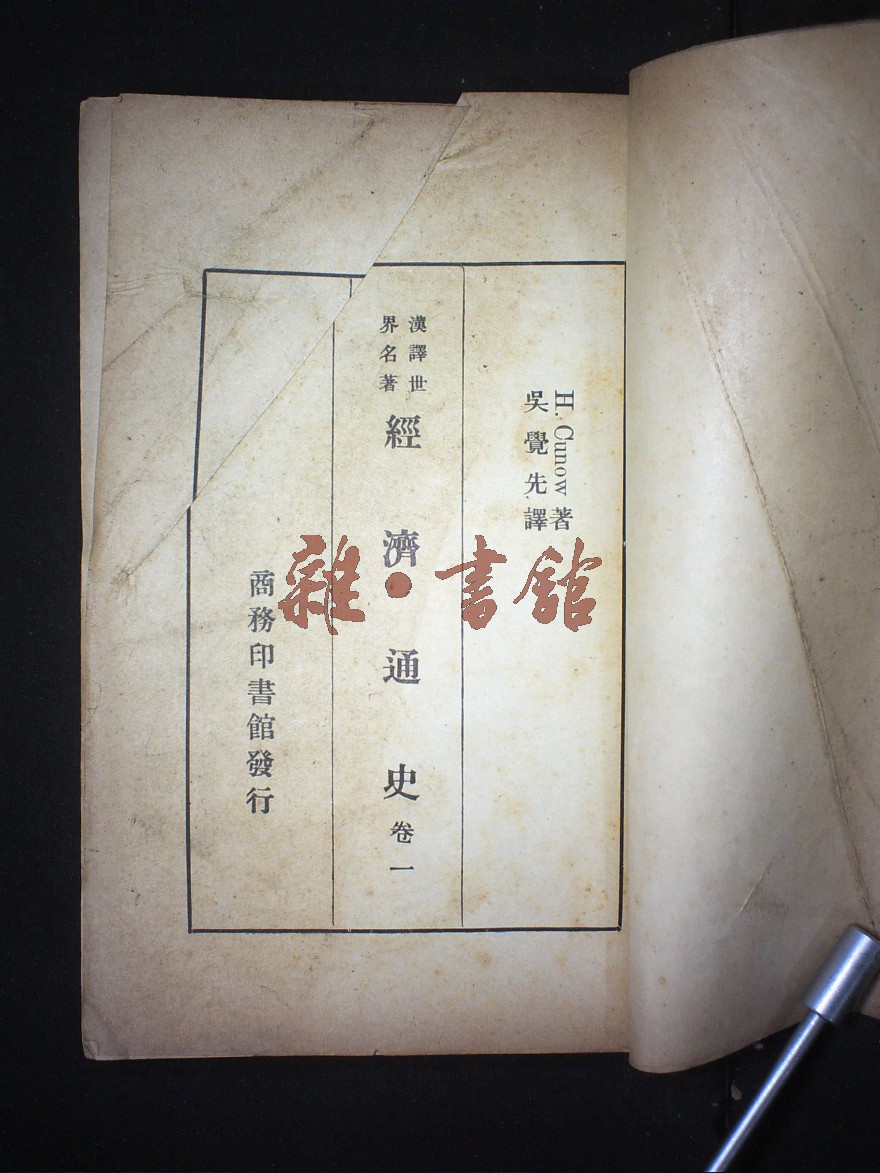 H. Cunow 著
吳覺先譯
漢譯世
界名著
經濟通史 卷一
商務印書館發行
雜·書館